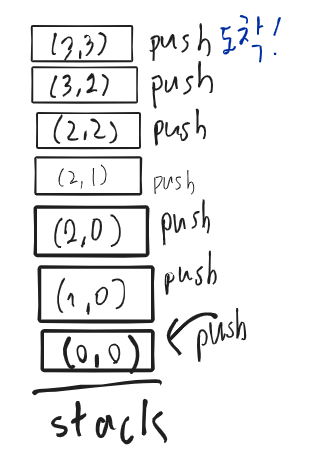 (3,3) push 도착!
(3,2) push
(2,2) push
(2,1) push
(2,0) push
(1,0) push
(0,0) push
stack